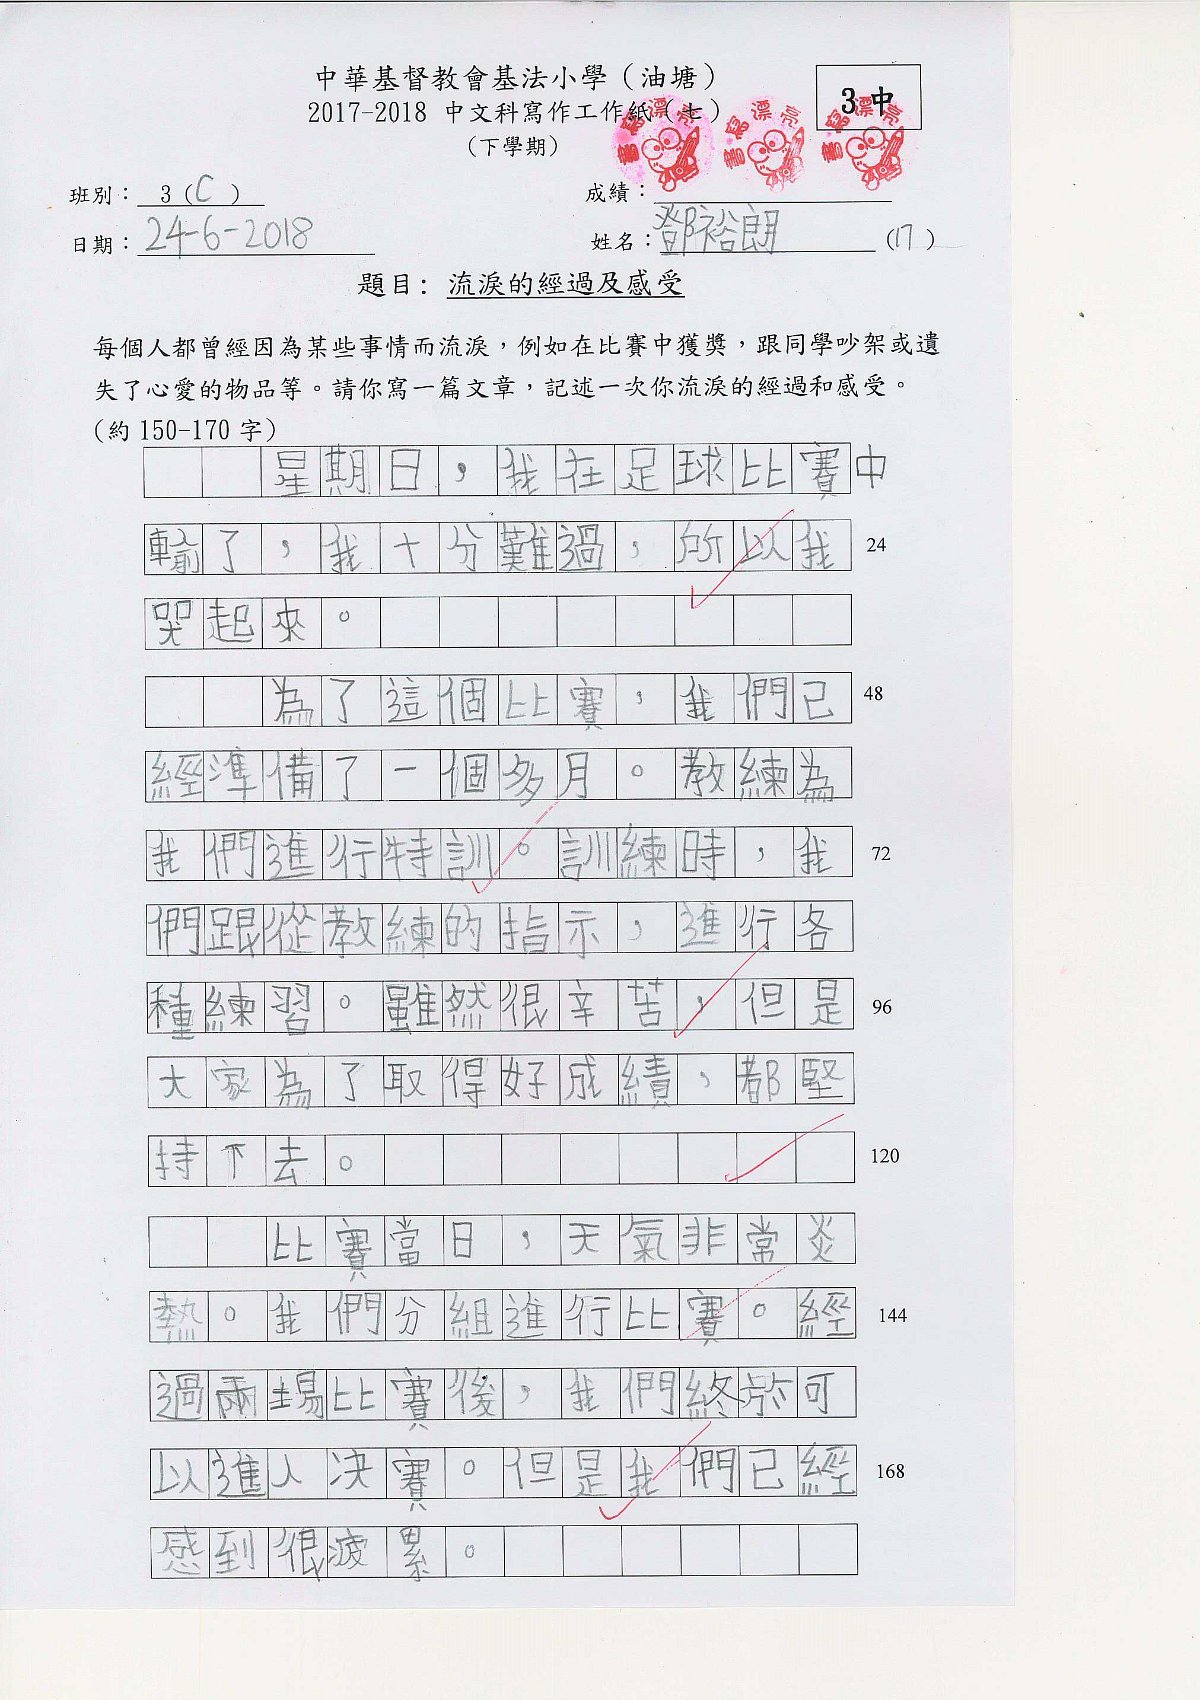 中華基督教會基法小學（油塘）
2017-2018 中文科寫作工作紙（七）
（下學期）
3中
書寫漂亮
書寫漂亮
書寫漂亮
班別：3（C）
成績：
日期：24-6-2018
姓名：鄧裕朗（17）
題目：流淚的經過及感受
每個人都曾經因為某些事情而流淚，例如在比賽中獲獎，跟同學吵架或遺
失了心愛的物品等。請你寫一篇文章，記述一次你流淚的經過和感受。
(約 150-170 字)
星期日，我在足球比賽中
輸了，我十分難過，所以我 24
哭起來。
為了這個比賽，我們已 48
經準備了一個多月。教練為
我們進行特訓。訓練時，我 72
們跟從教練的指示，進行各
種練習。雖然很辛苦，但是 96
大家為了取得好成績，都堅
持下去。 120
比賽當日，天氣非常炎
熱。我們分組進行比賽。經 144
過兩場比賽後，我們終於可
以進入決賽。但是我們已經 168
感到很疲累。